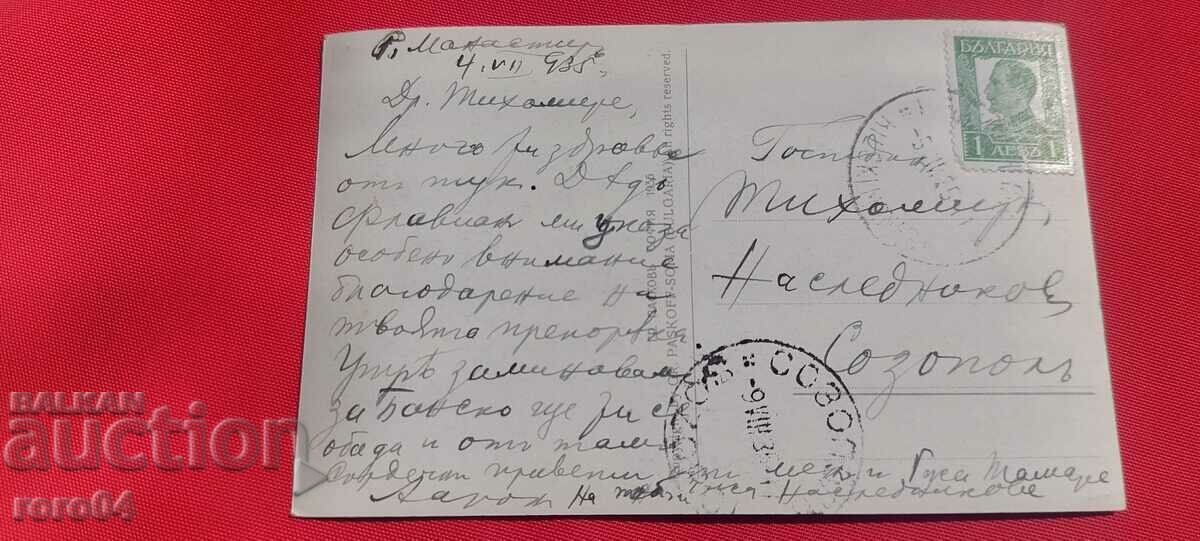 Р. Манастир
4.VII 935
Др. Тихомире,
Много поздрави
от тук. Дядо
Флавиан ми указа
особено внимание
благодарение на
твоята препоръка
Утрѣ заминавам
за Банско где
обада и отъ там.
Сърдечни привети от мен и Тамаре
На Наследникове
Господинъ
Тихомиръ
Наследников
Созополъ
БЪЛГАРИЯ
1 ЛЕВЪ 1
СОЗОПОЛ
ГР. ПАСКОВЪ СОФИЯ 1930
GR. PASKOFF-SOFIA (BULGARIA) All rights reserved.
BALKAN
auction
roro04